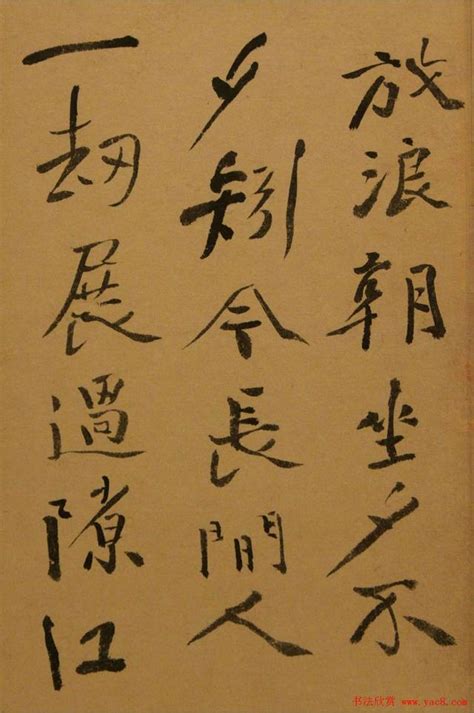 放浪朝坐夕不
夕矧今長閒人
一刧展過隙江
书法欣赏 www.yac8.com